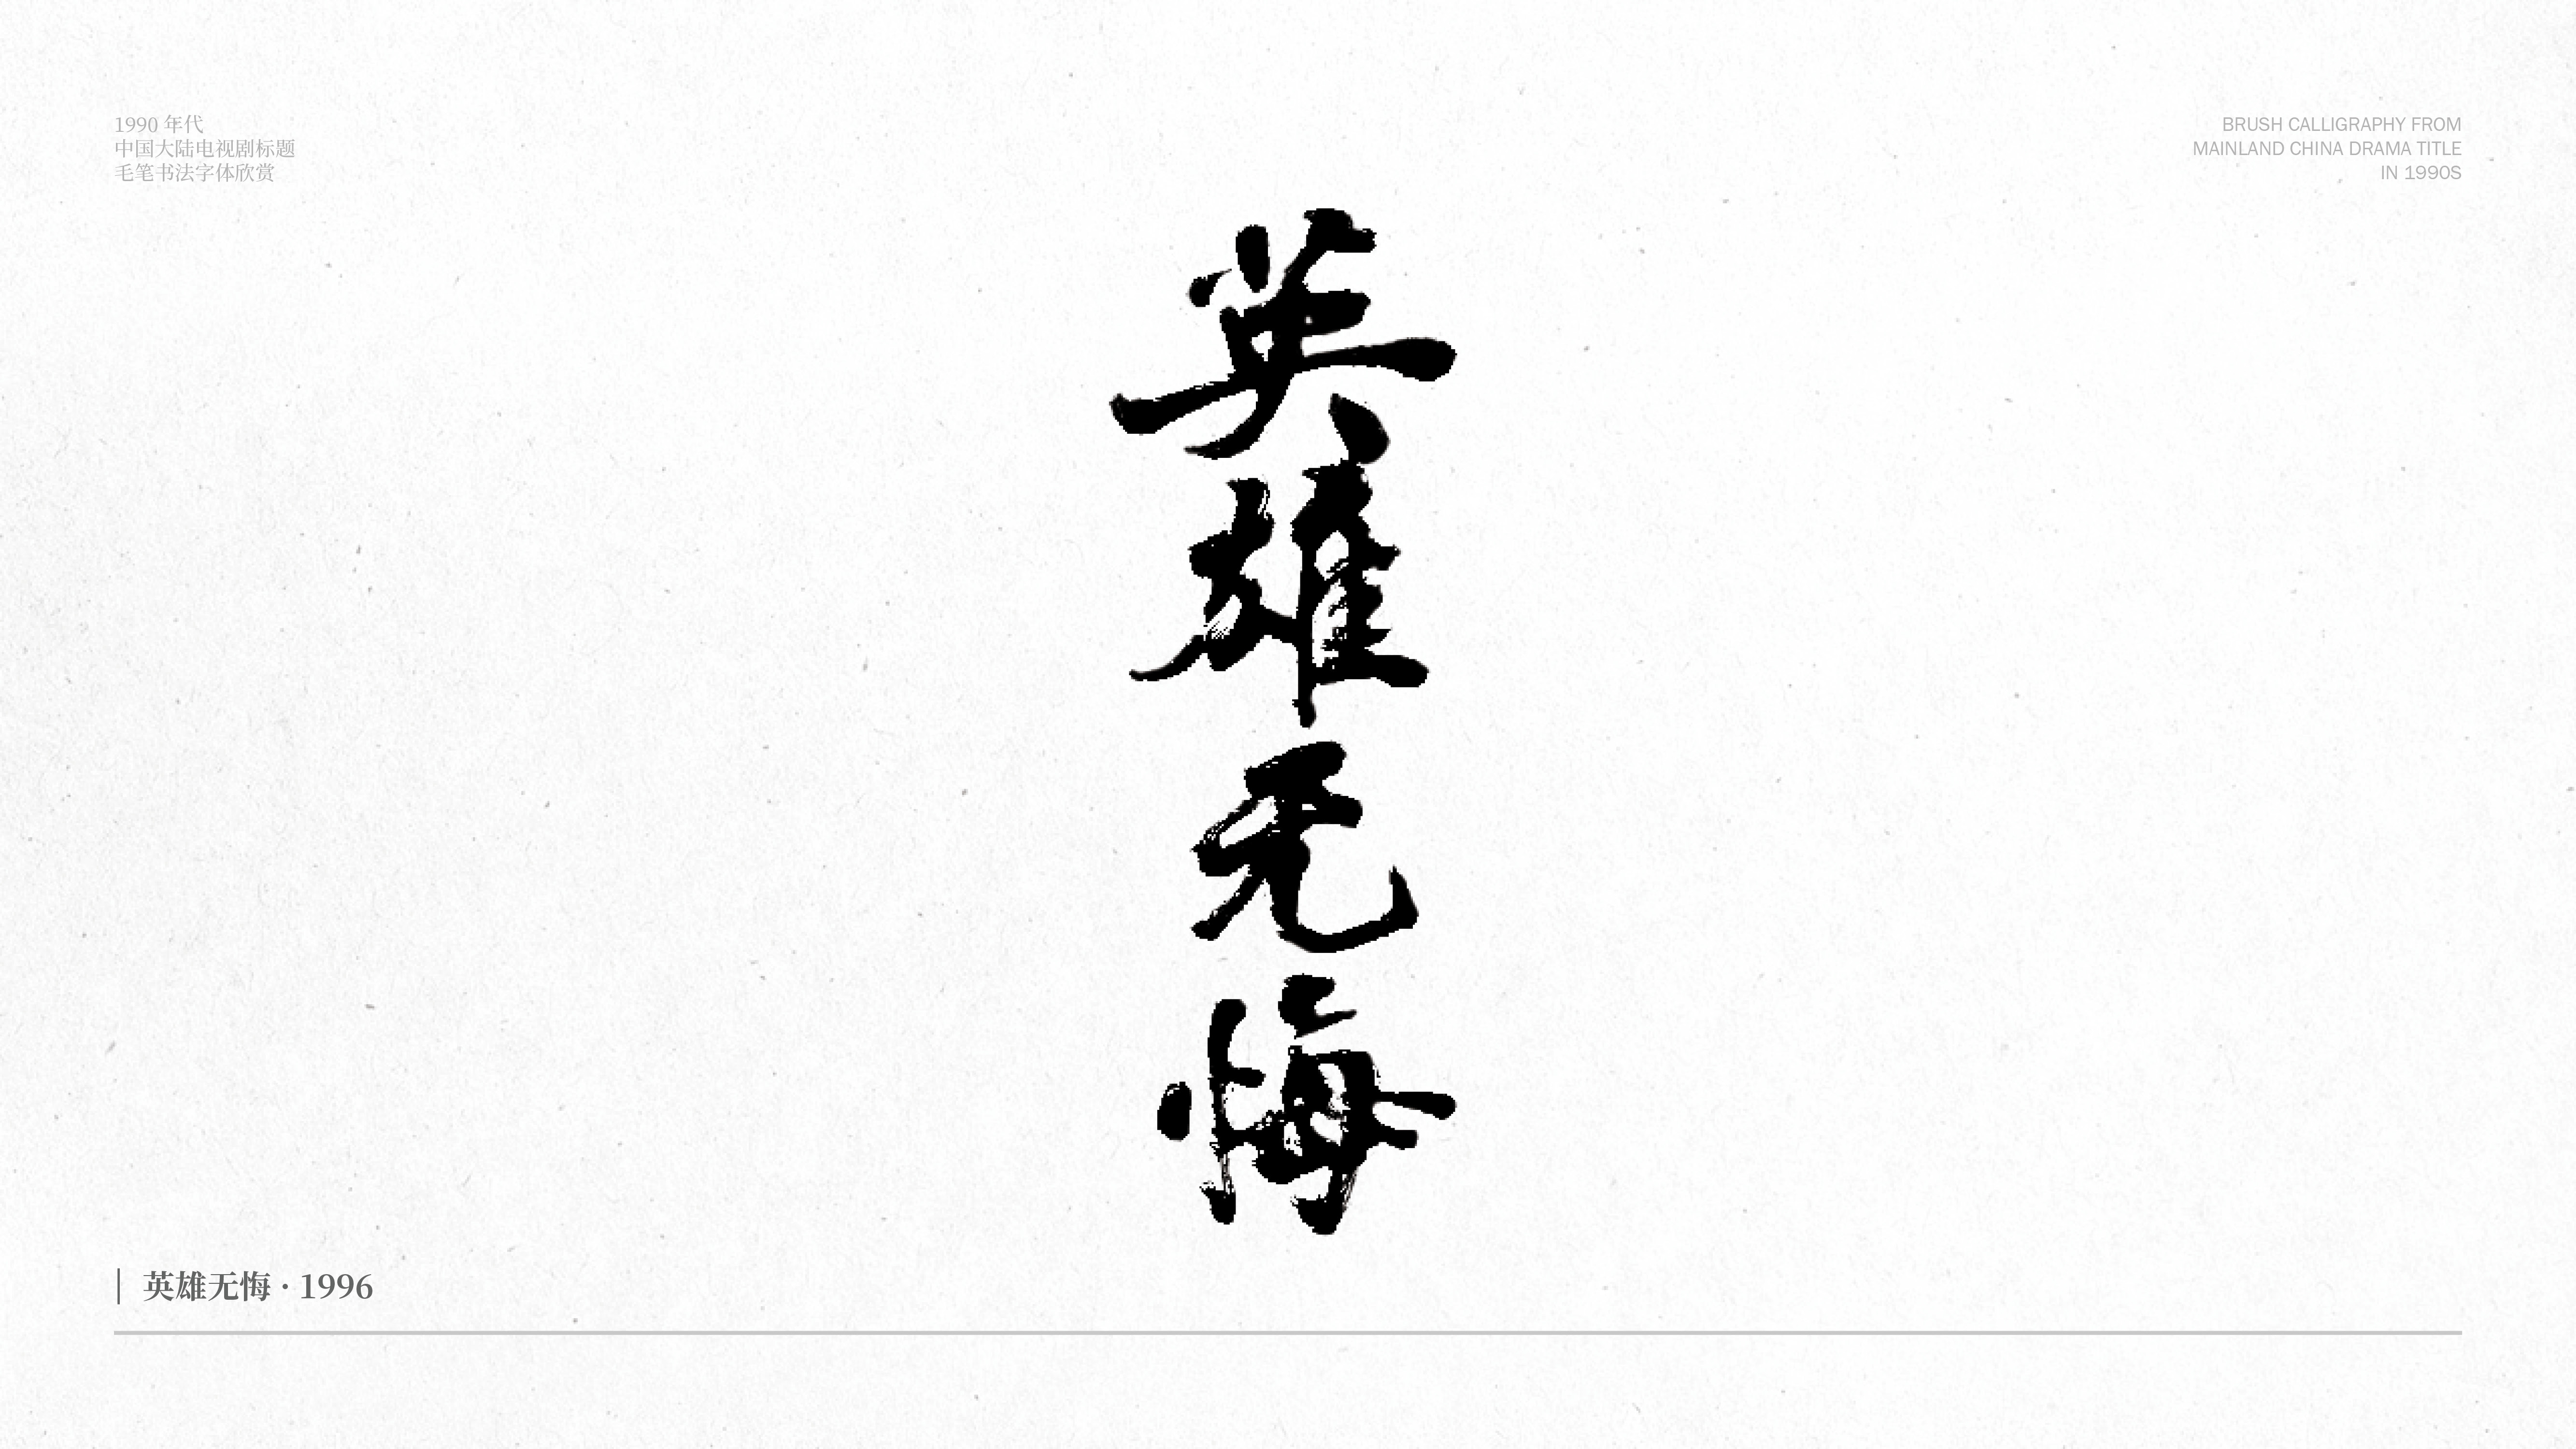 1990 年代
中国大陆电视剧标题
毛笔书法字体欣赏
BRUSH CALLIGRAPHY FROM
MAINLAND CHINA DRAMA TITLE
IN 1990S
英雄无悔
英雄无悔 · 1996